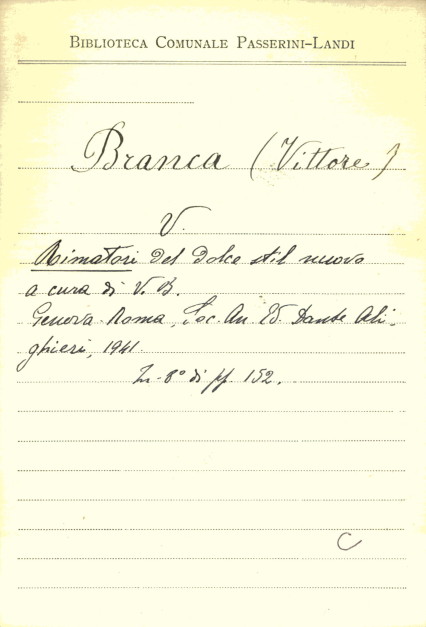 BIBLIOTECA COMUNALE PASSERINI-LANDI
Branca (Vittore)
V.
Rimatori del dolce stil nuovo
a cura di V. B.
Genova-Roma, Soc. An. Ed. Dante Ali-
ghieri, 1941.
In-8° di pp. 152.
C